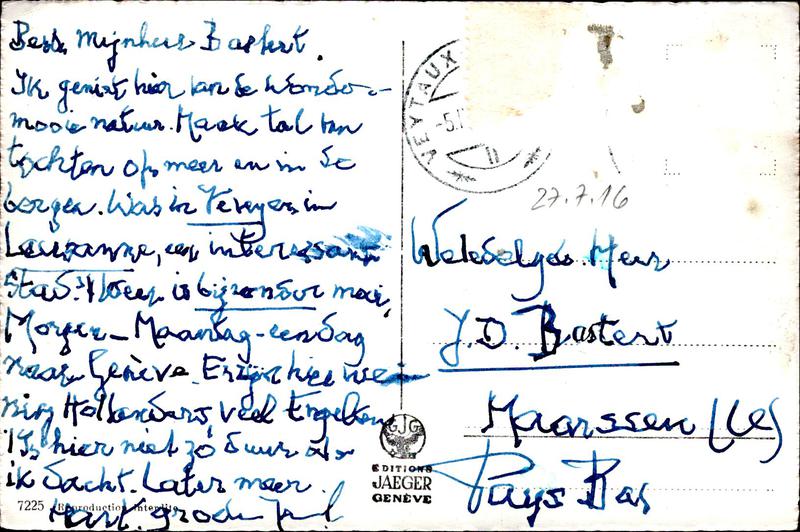 Beste Mijnheer Bastert.
Ik geniet hier van de wonder-
mooie natuur. Maak tal van
tochten op meer en in de
bergen. Was in Vevey en in
Lausanne, een interessante
stad. 't Weer is bijzonder mooi,
Morgen - Maandag - een dag
naar Genève. Er zijn hier wei-
nig Hollanders, veel Engelsen
't Is hier niet zó duur als
ik dacht. Later meer.
Hart. groeten
7225 Reproduction interdite
VEYTAUX
-5.I
27.7.16
GJG
EDITIONS
JAEGER
GENÈVE
Weledelgeb. Heer
J.D. Bastert
Maarssen
Pays Bas